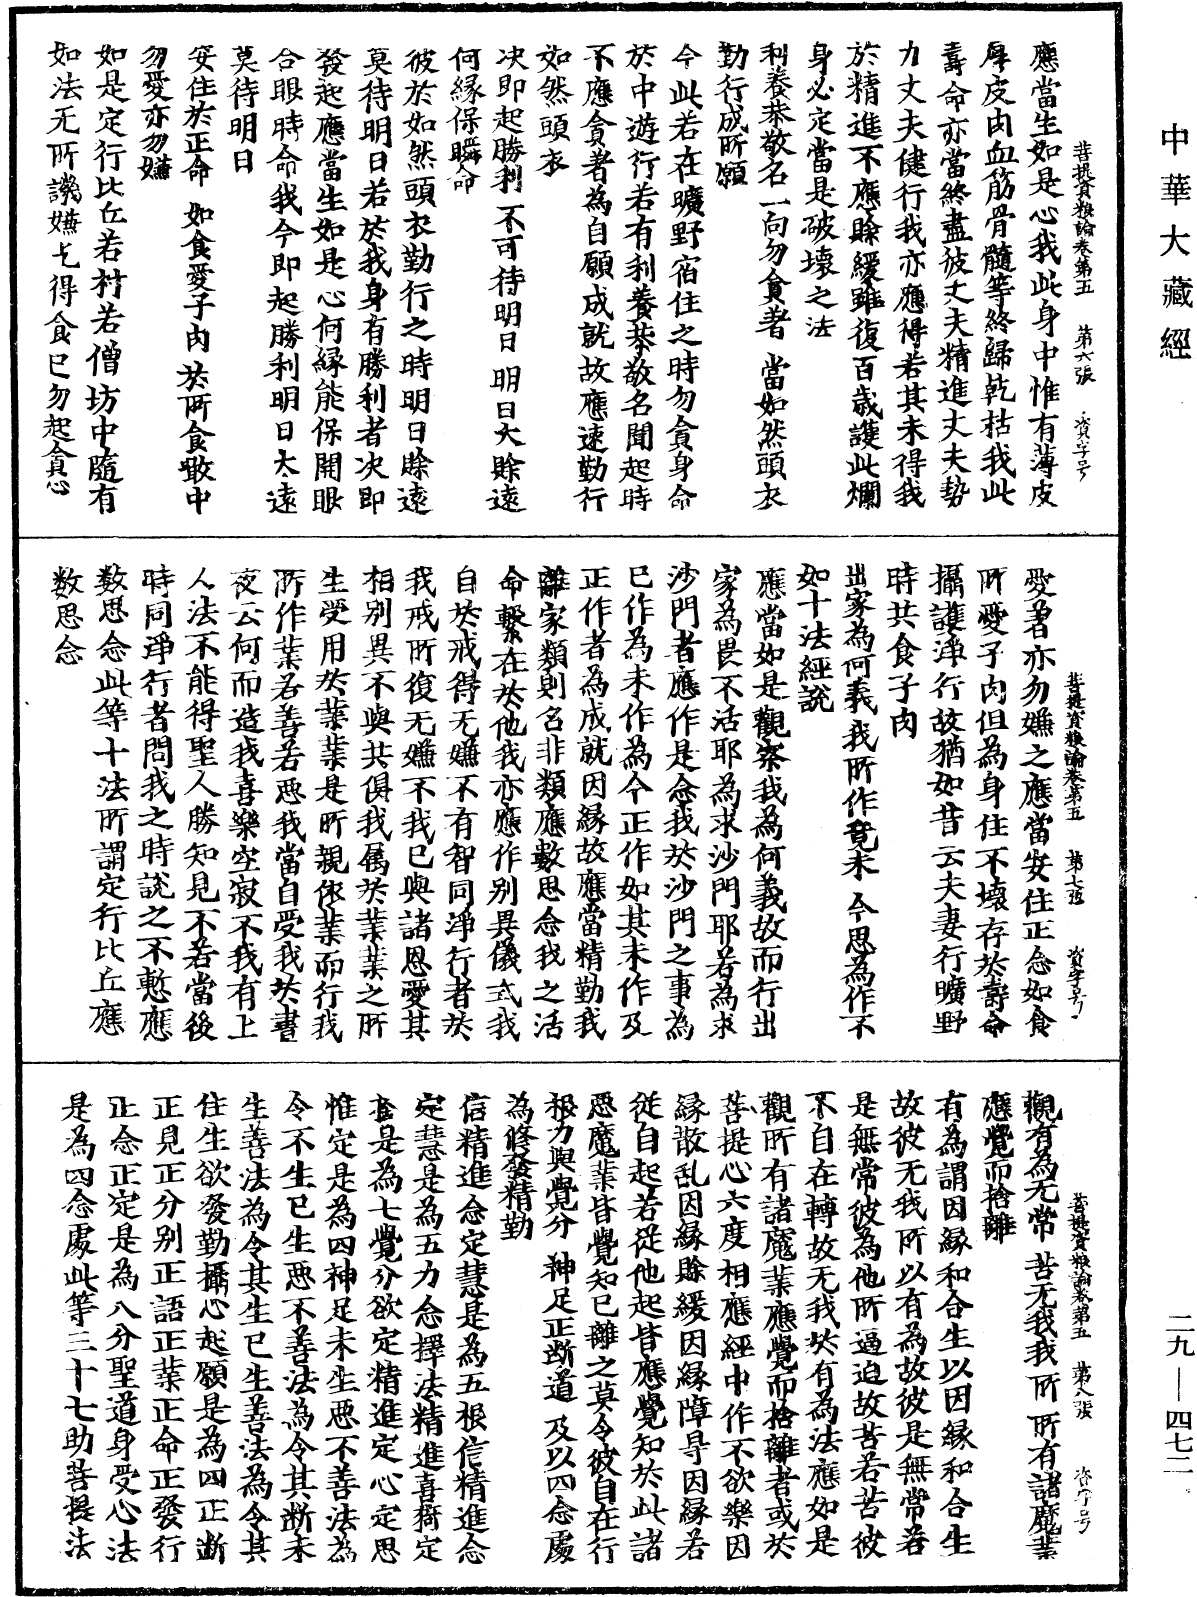 中華大藏經
菩提資粮論卷第五　第六張　資字号
應當生如是心我此身中惟有薄皮
厚皮肉血筋骨髓等終歸乾枯我此
壽命亦當終盡彼丈夫精進丈夫勢
力丈夫健行我亦應得若其未得我
於精進不應賒緩雖復百歲護此爛
身必定當是破壞之法
利養恭敬名一向勿貪著　當如然頭衣
勤行成所願
今此若在曠野宿住之時勿貪身命
於中遊行若有利養恭敬名聞起時
不應貪著為自願成就故應速勤行
如然頭衣
决即起勝利　不可待明日　明日大賒遠
何緣保瞬命
彼於如然頭衣勤行之時明日賒遠
莫待明日若於我身有勝利者决即
發起應當生如是心何緣能保開眼
合眼時命我今即起勝利明日大遠
莫待明日
安住於正命　如食愛子肉　於所食噉中
勿愛亦勿嫌
如是定行比丘若村若僧坊中隨有
如法无所譏嫌乞得食已勿起貪心
菩提資粮論卷第五　第七張　資字号
愛著亦勿嫌之應當安住正念如食
所愛子肉但為身住不壞存於壽命
攝護淨行故猶如昔云夫妻行曠野
時共食子肉
出家為何義　我所作竟未　今思為作不
如十法經說
應當如是觀察我為何義故而行出
家為畏不活耶為求沙門耶若為求
沙門者應作是念我於沙門之事為
已作為未作為今正作如其未作及
正作者為成就因緣故應當精勤我
離家類則名非類應數思念我之活
命繫在於他我亦應作別異儀式我
自於戒得无嫌不有智同淨行者於
我戒所復无嫌不我已與諸恩愛其
相別異不與共俱我屬於業業之所
生受用於業業是所親依業而行我
所作業若善若惡我當自受我於晝
夜云何而造我喜樂空寂不我有上
人法不能得聖人勝知見不若當後
時同淨行者問我之時說之不慙應
數思念此等十法所謂定行比丘應
數思念
菩提資粮論卷第五　第八張　資字号
觀有為无常　苦无我我所　所有諸魔業
應覺而捨離
有為謂因緣和合生以因緣和合生
故彼无我所以有為故彼是無常若
是無常彼為他所逼迫故苦若苦彼
不自在轉故无我於有為法應如是
觀所有諸魔業應覺而捨離者或於
菩提心六度相應經中作不欲樂因
緣散乱因緣賒緩因緣障㝵因緣若
從自起若從他起皆應覺知於此諸
惡魔業皆覺知已離之莫令彼自在行
根力與覺分　神足正斷道　及以四念處
為修發精勤
信精進念定慧是為五根信精進念
定慧是為五力念擇法精進喜猗定
捨是為七覺分欲定精進定心定思
惟定是為四神足未生惡不善法為
令不生已生惡不善法為令其斷未
生善法為令其生已生善法為令其
住生欲發勤攝心起願是為四正斷
正見正分別正語正業正命正發行
正念正定是為八分聖道身受心法
是為四念處此等三十七助菩提法
二九—四七二